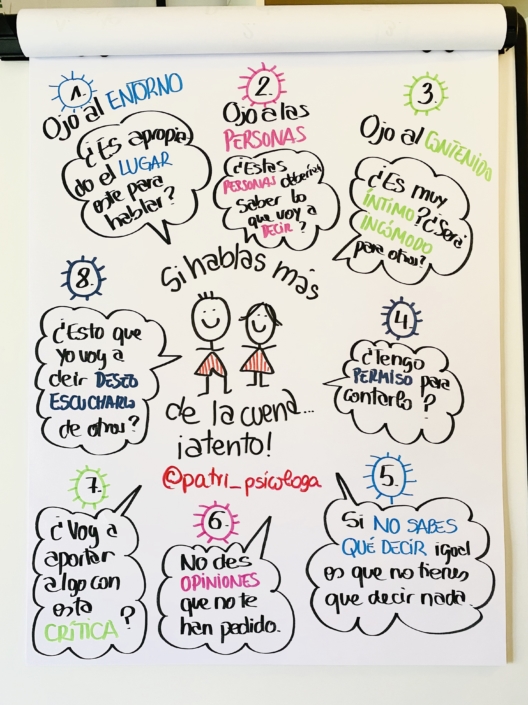 1.
Ojo al ENTORNO
¿Es apropia
do el LUGAR
este para
hablar?
2.
Ojo a las
PERSONAS
¿Estas
PERSONAS deberían
saber lo
que voy a
DECIR?
3.
Ojo al CONTENIDO
¿Es muy
ÍNTIMO? ¿Será
INCÓMODO
para otros?
Si hablas más
de la cuenta...
¡atento!
@patri_psicologa
4.
¿Tengo
PERMISO para
contarlo?
5.
Si NO SABES
QUÉ DECIR igual
es que no tienes
que decir nada.
6.
No des
OPINIONES
que no te
han pedido.
7.
¿Voy a
aportar
algo con
esta
CRÍTICA?
8.
¿Esto que
yo voy a
decir DESEO
ESCUCHARLO
de otros?